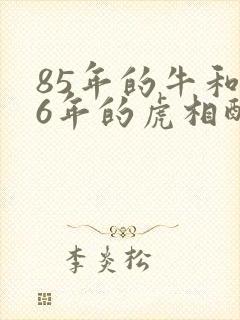 85年的牛和
6年的虎相
李炎松